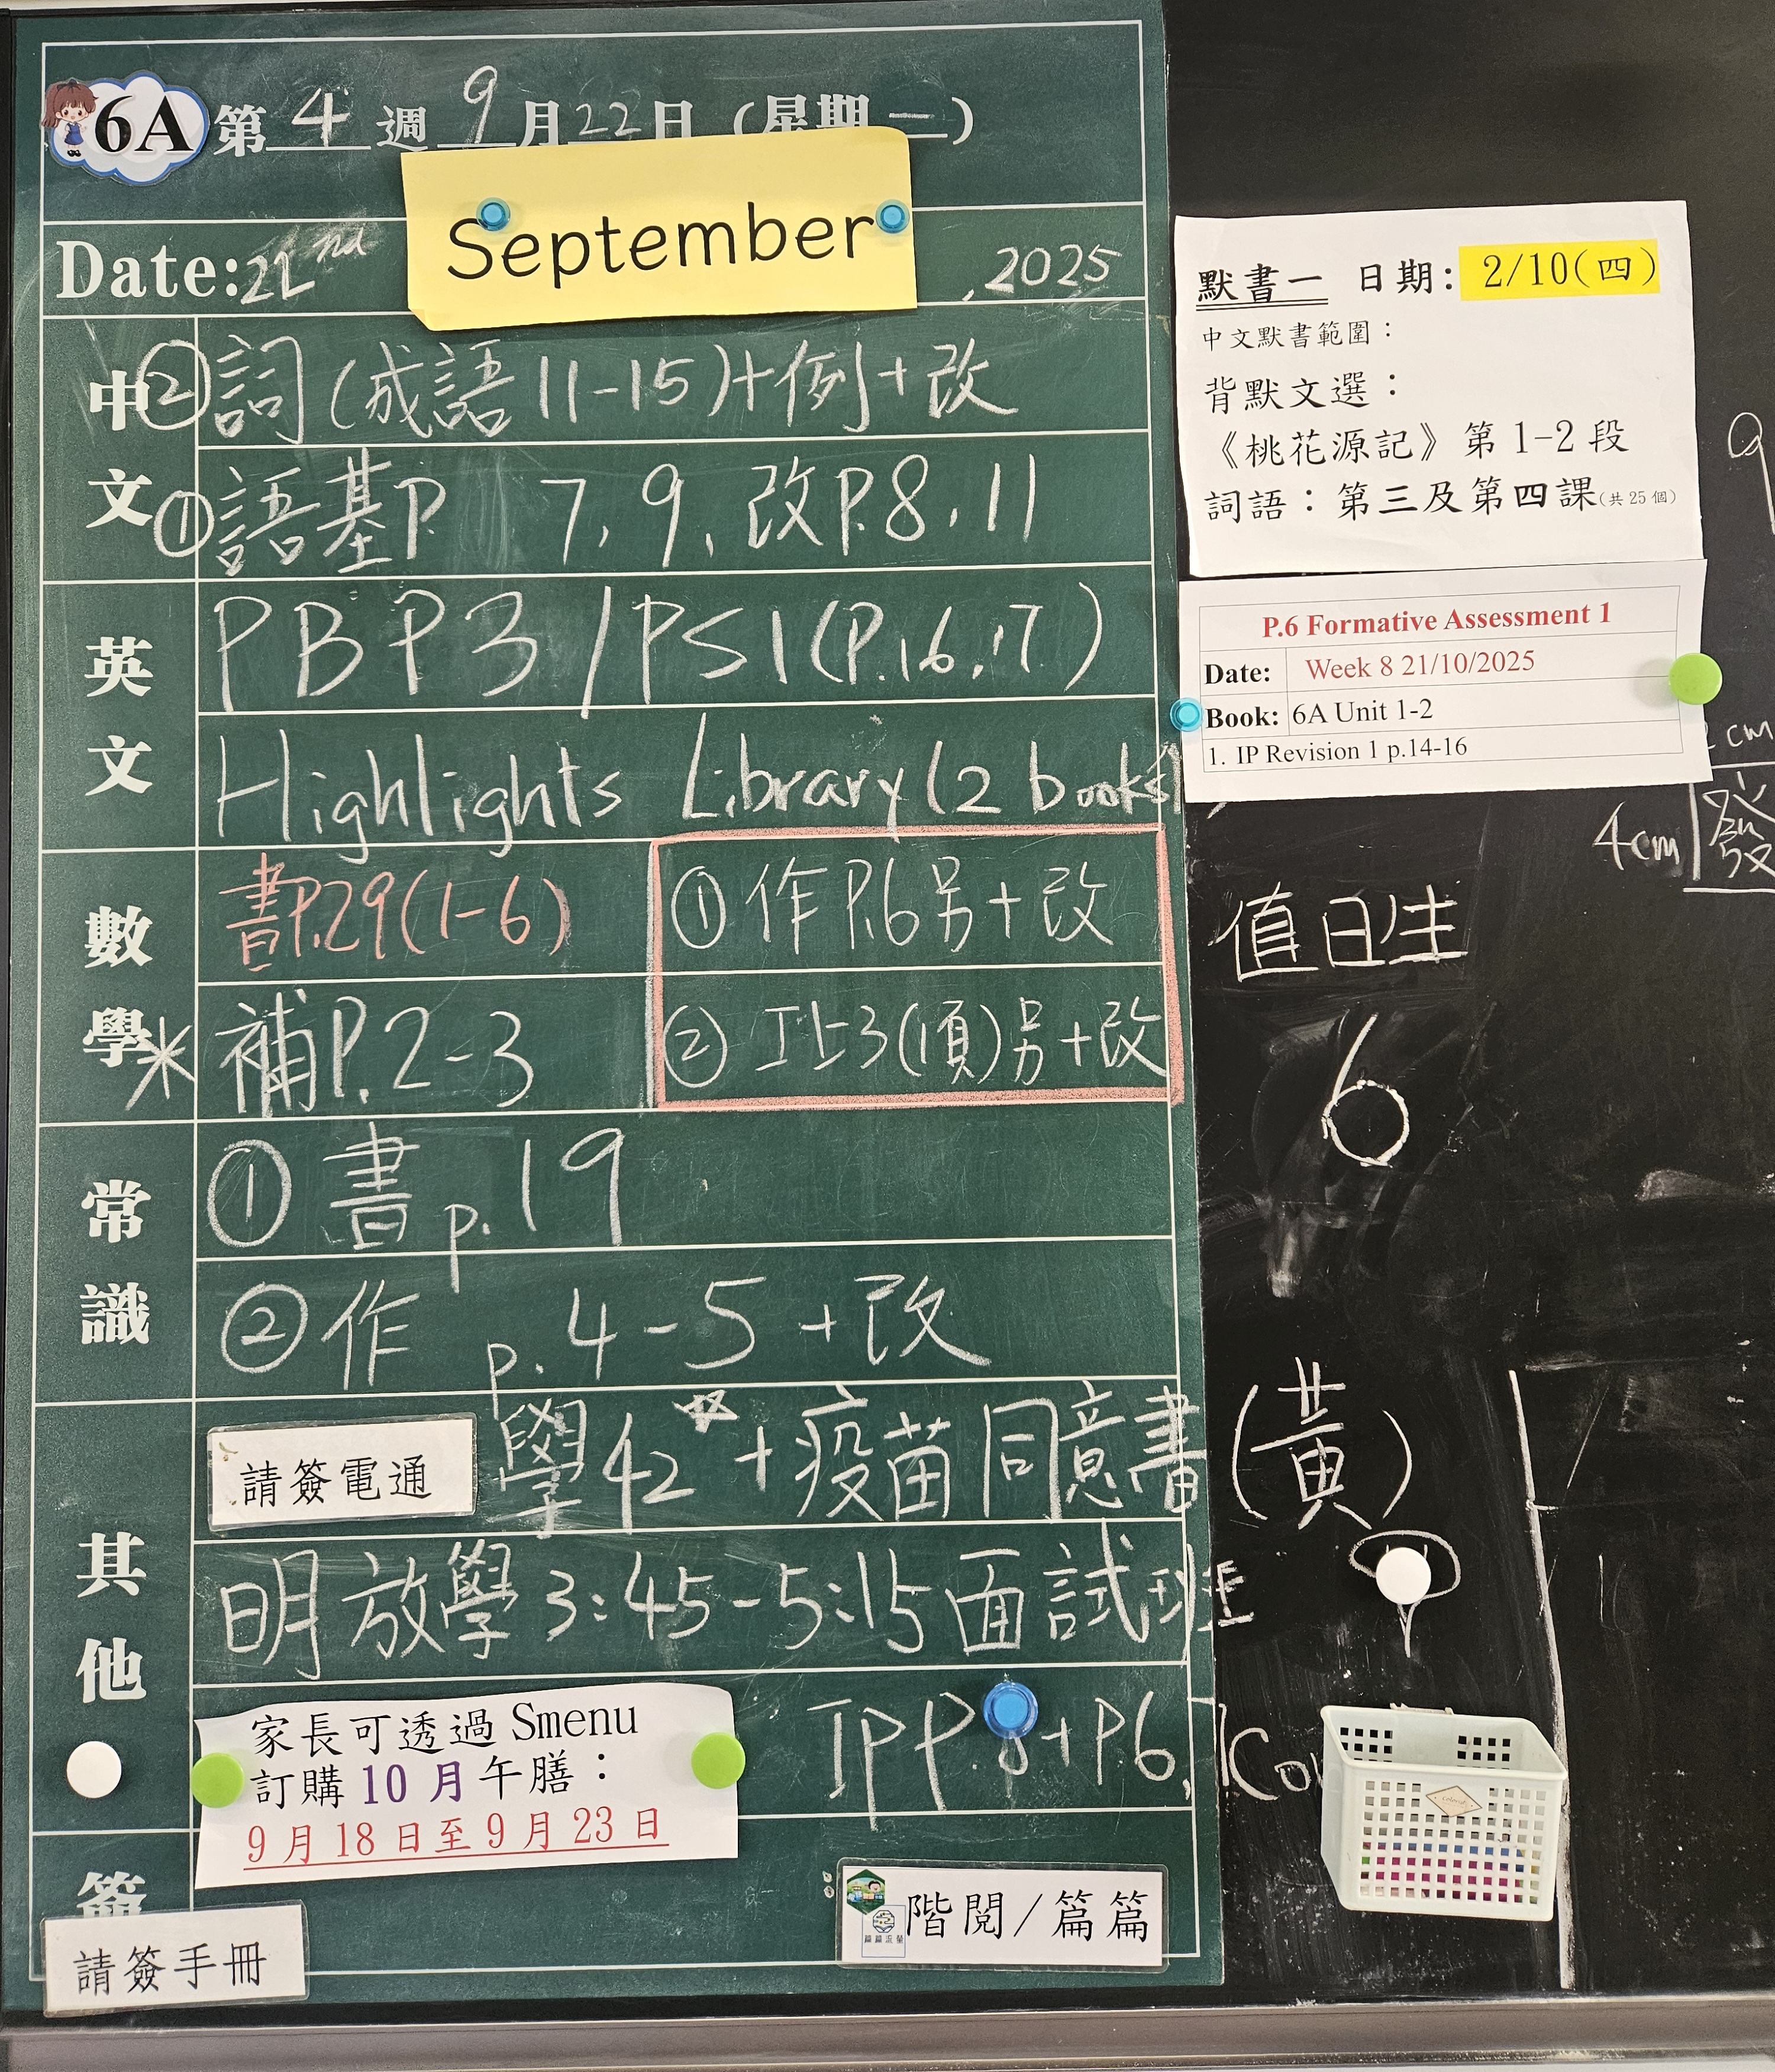 6A 第 4 週 9 月 22 日 (星期一)
September
Date: 22nd , 2025
中文
② 詞 (成語 11-15)+例+改
① 語基P. 7, 9, 改P.8, 11
英文
PBP3/PS1(P.16,17)
Highlights Library (2 books)
數學
書P.29(1-6)
① 作P.6另+改
* 補P.2-3
② 工上3(項)另+改
常識
① 書 p.19
② 作 p.4-5+改
其他
請簽電通
學42 +疫苗同意書 (黃)
明放學 3:45-5:15 面試班
家長可透過 Smenu
訂購 10 月午膳：
9 月 18 日至 9 月 23 日
IP P. +P.6,
請簽手冊
階閱/篇篇
默書一 日期: 2/10(四)
中文默書範圍：
背默文選：
《桃花源記》第 1-2 段
詞語：第三及第四課(共 25 個)
P.6 Formative Assessment 1
Date: Week 8 21/10/2025
Book: 6A Unit 1-2
1. IP Revision 1 p.14-16
cm
4cm 發
值日生
6